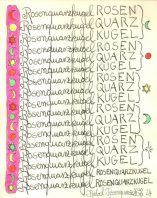 Rosenquarzkugel ROSEN
Rosenquarzkugel QUARZ
Rosenquarzkugel KUGEL
Rosenquarzkugel ROSEN
Rosenquarzkugel QUARZ
Rosenquarzkugel KUGEL
Rosenquarzkugel ROSEN
Rosenquarzkugel QUARZ
Rosenquarzkugel KUGEL
Rosenquarzkugel ROSEN
Rosenquarzkugel QUARZ
Rosenquarzkugel KUGEL
Rosenquarzkugel ROSENQUARZKUGEL
Rosenquarzkugel ROSENQUARZKUGEL